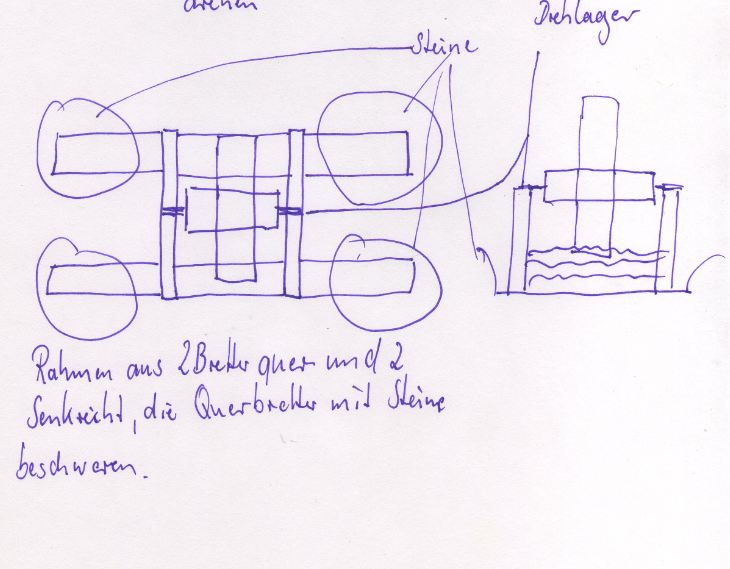 drehen
Drehlager
Steine
Rahmen aus 2 Bretter quer und 2
Senkrecht, die Querbretter mit Steine
beschweren.